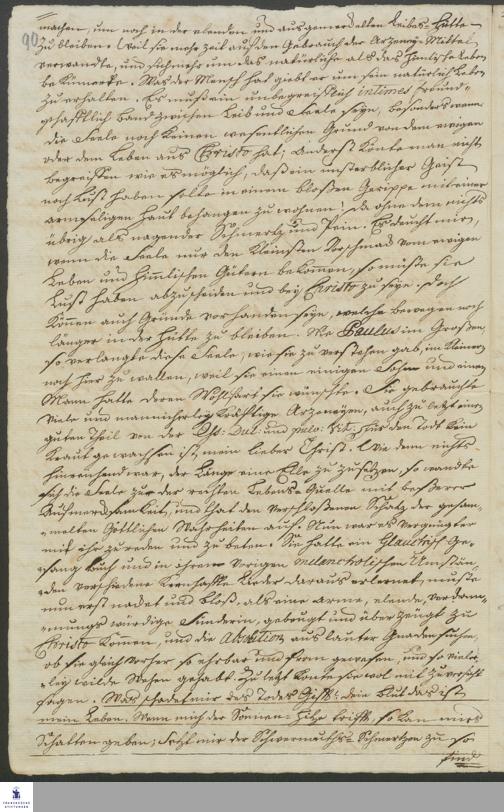 90.
machen, um noch in der elenden und ausgemergelten Leibes-Hütte
zu bleiben. Weil sie mehr Zeit auf den Gebrauch der Arzeney-Mittel
verwandte, und sich mehr um das natürliche als das himlische Leben
bekümmerte. Was der Mensch hat giebt er um sein natürlich Leben
zu erhalten. Es muß ein unbegreiflich intimes freund-
schafftlich band zwischen Leib und Seele seyn, besonders wenn
die Seele noch keinen wesentlichen Grund von dem ewigen
oder dem Leben aus Christo hat; anderst könte man nicht
begreiffen wie es möglich, daß ein unsterblicher Geist
noch Lust haben solte in einem bloßen Gerippe mit einer
armseligen Haut behangen zu wohnen; da ohne dem nichts
übrig als nagender Schmertz und Pein. Es deucht mir,
wenn die Seele nur den kleinsten Vorschmack vom ewigen
Leben und himmlischen Gütern bekommen, so müste sie
Lust haben abzuscheiden und bey Christo zu seyn. Doch
können auch Gründe vorhanden seyn, welche bewegen noch
länger in der Hütte zu bleiben. Wie Paulus im Großen,
so verlangte diese Seele, wie sie zu verstehen gab, im kleinern
noch hier zu wallen, weil sie einen einigen Sohn und einen
Mann hatte deren Wohlfart sie wünschte. Sie gebrauchte
viele und mancherley kräfftige Arzeneyen, auch zu letzt einen
guten Theil von der Ess: Dul: und pulv: Vit: für den Todt kein
Kraut gewachsen ist, mein lieber Christ. Wie dem nichts
hinreichend war, der Länge eine Elle zu zusetzen, so wandte
sich die Seele zu der rechten Lebens-Quelle mit beßerer
Aufmercksamkeit, und that den verschloßenen Schatz der gesam-
melten Göttlichen Wahrheiten auf. Nun war es vergnügter
mit ihr zu reden und zu beten. Sie hatte ein Glauchisch Ge-
sang buch und in ihren vorigen melancholischen Umstän-
den verschiedene kernhaffte Lieder daraus erlernet, muste
nun erst nackt und bloß, als eine arme, elende, verdam-
mungs würdige Sünderin, gebeugt und überzeugt zu
Christo kommen, und die Absolution aus lauter Gnaden suchen,
ob sie gleich vorher so ehrbar und from gewesen, und so vieler-
ley wilde Wehen gehabt. Zu letzt konte sie wol mit Zuversicht
sagen. Was schadet mir des Todes Gifft? dein Blut das ist
mein Leben. Wenn mich der Sonnen-Hitze trifft, so kan mirs
Schatten geben; Setzt mir der Schwermuths-Schmertzen zu so
find
FRANCKESCHE STIFTUNGEN